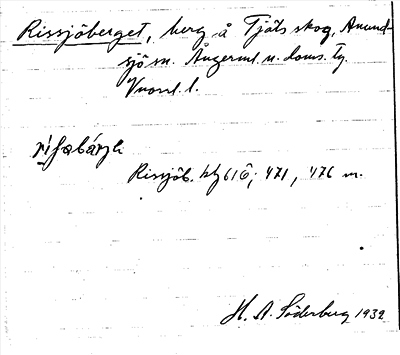 Rissjöberget, berg å Tjäls skog, Anund-
sjö sn. Ångerml. n. doms. Tg.
Vnorrl. l.
Rissjöb. kb 616; 471, 476 m.
H. A. Söderberg 1932